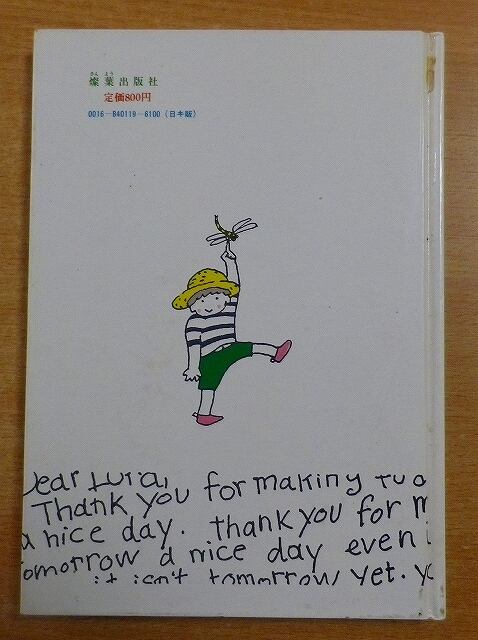 さんよう
燦葉出版社
定価800円
0016-840119-6100（日キ販）
Dear
Thank you for making
a nice day. thank you for
tomorrow a nice day even
it isn't tomorrow yet.